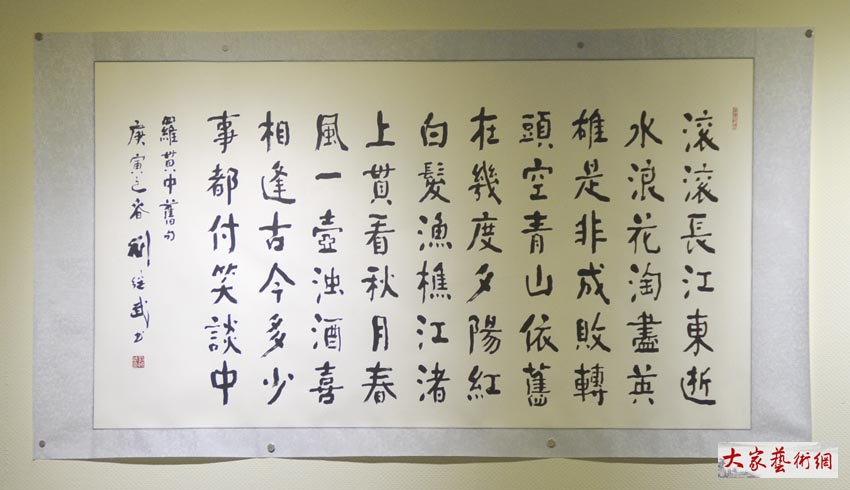 滚滚長江東逝
水浪花淘盡英
雄是非成敗轉
頭空青山依舊
在幾度夕陽紅
白髮漁樵江渚
上貫看秋月春
風一壺浊酒喜
相逢古今多少
事都付笑談中
羅貫中舊句
庚寅之春劉武书
大家藝術網